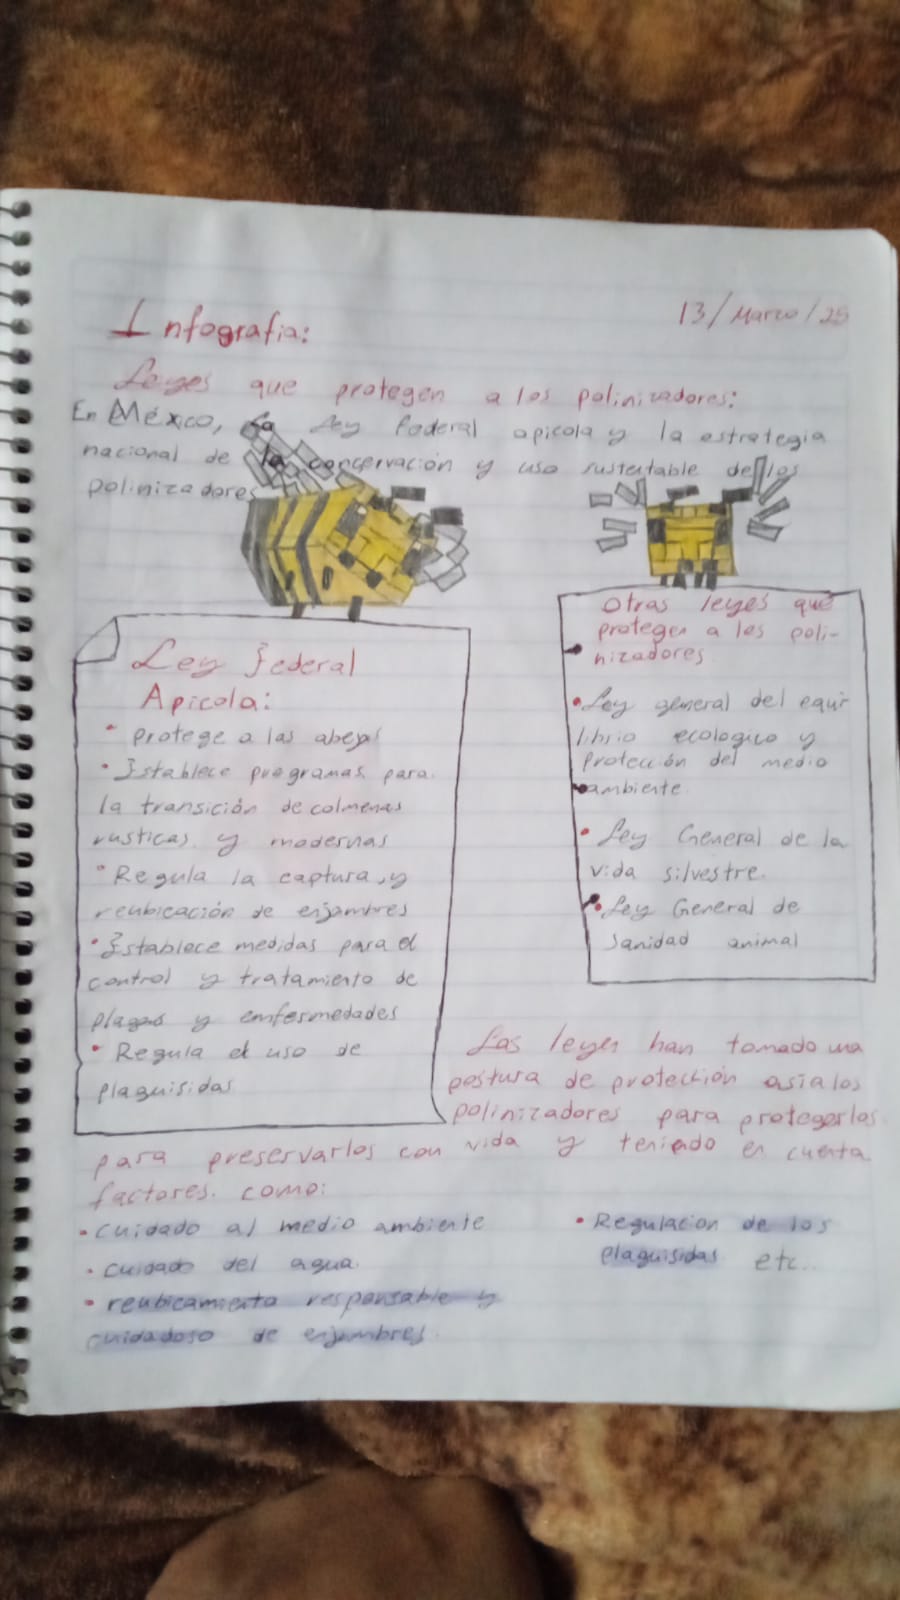 13/Marzo/25
Infografia:
Leyes que protegen a los polinizadores:
En México, la ley federal apicola y la estrategia
nacional de la concervación y uso sustentable de los
polinizadores
Ley Federal
Apicola:
• protege a las abejas
• Establece programas para
la transición de colmenas
rusticas y modernas
• Regula la captura y
reubicación de enjambres
• Establece medidas para el
control y tratamiento de
plagas y emfermedades
• Regula el uso de
plaguisidas
Otras leyes que
protegen a los poli-
nizadores
• Ley general del equi-
librio ecologico y
protección del medio
ambiente
• Ley General de la
vida silvestre.
• Ley General de
Sanidad animal
Las leyes han tomado una
postura de protección asia los
polinizadores para protegerlos
para preservarlos con vida y teniendo en cuenta
factores. como:
• cuidado al medio ambiente
• cuidado del agua.
• reubicamiento responsable y
cuidadoso de enjambres.
• Regulacion de los
plaguisidas etc...